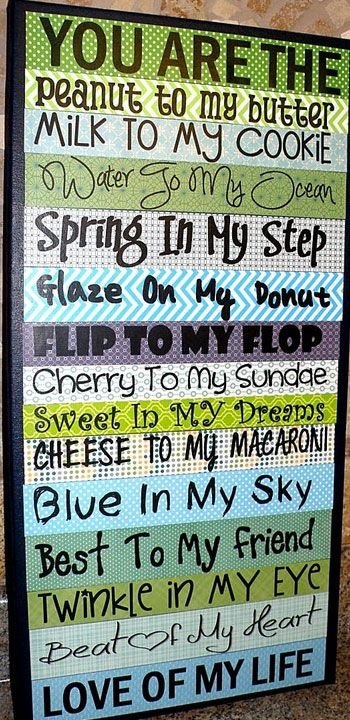 YOU ARE THE
peanut to my butter
MiLK TO MY COOKiE
Water To My Ocean
Spring In My Step
Glaze On My Donut
FLIP TO MY FLOP
Cherry To My Sundae
Sweet In My Dreams
CHEESE TO My MACARONI
Blue In My Sky
Best To My Friend
TWiNKLe iN MY EYe
Beat Of My Heart
LOVE OF MY LIFE